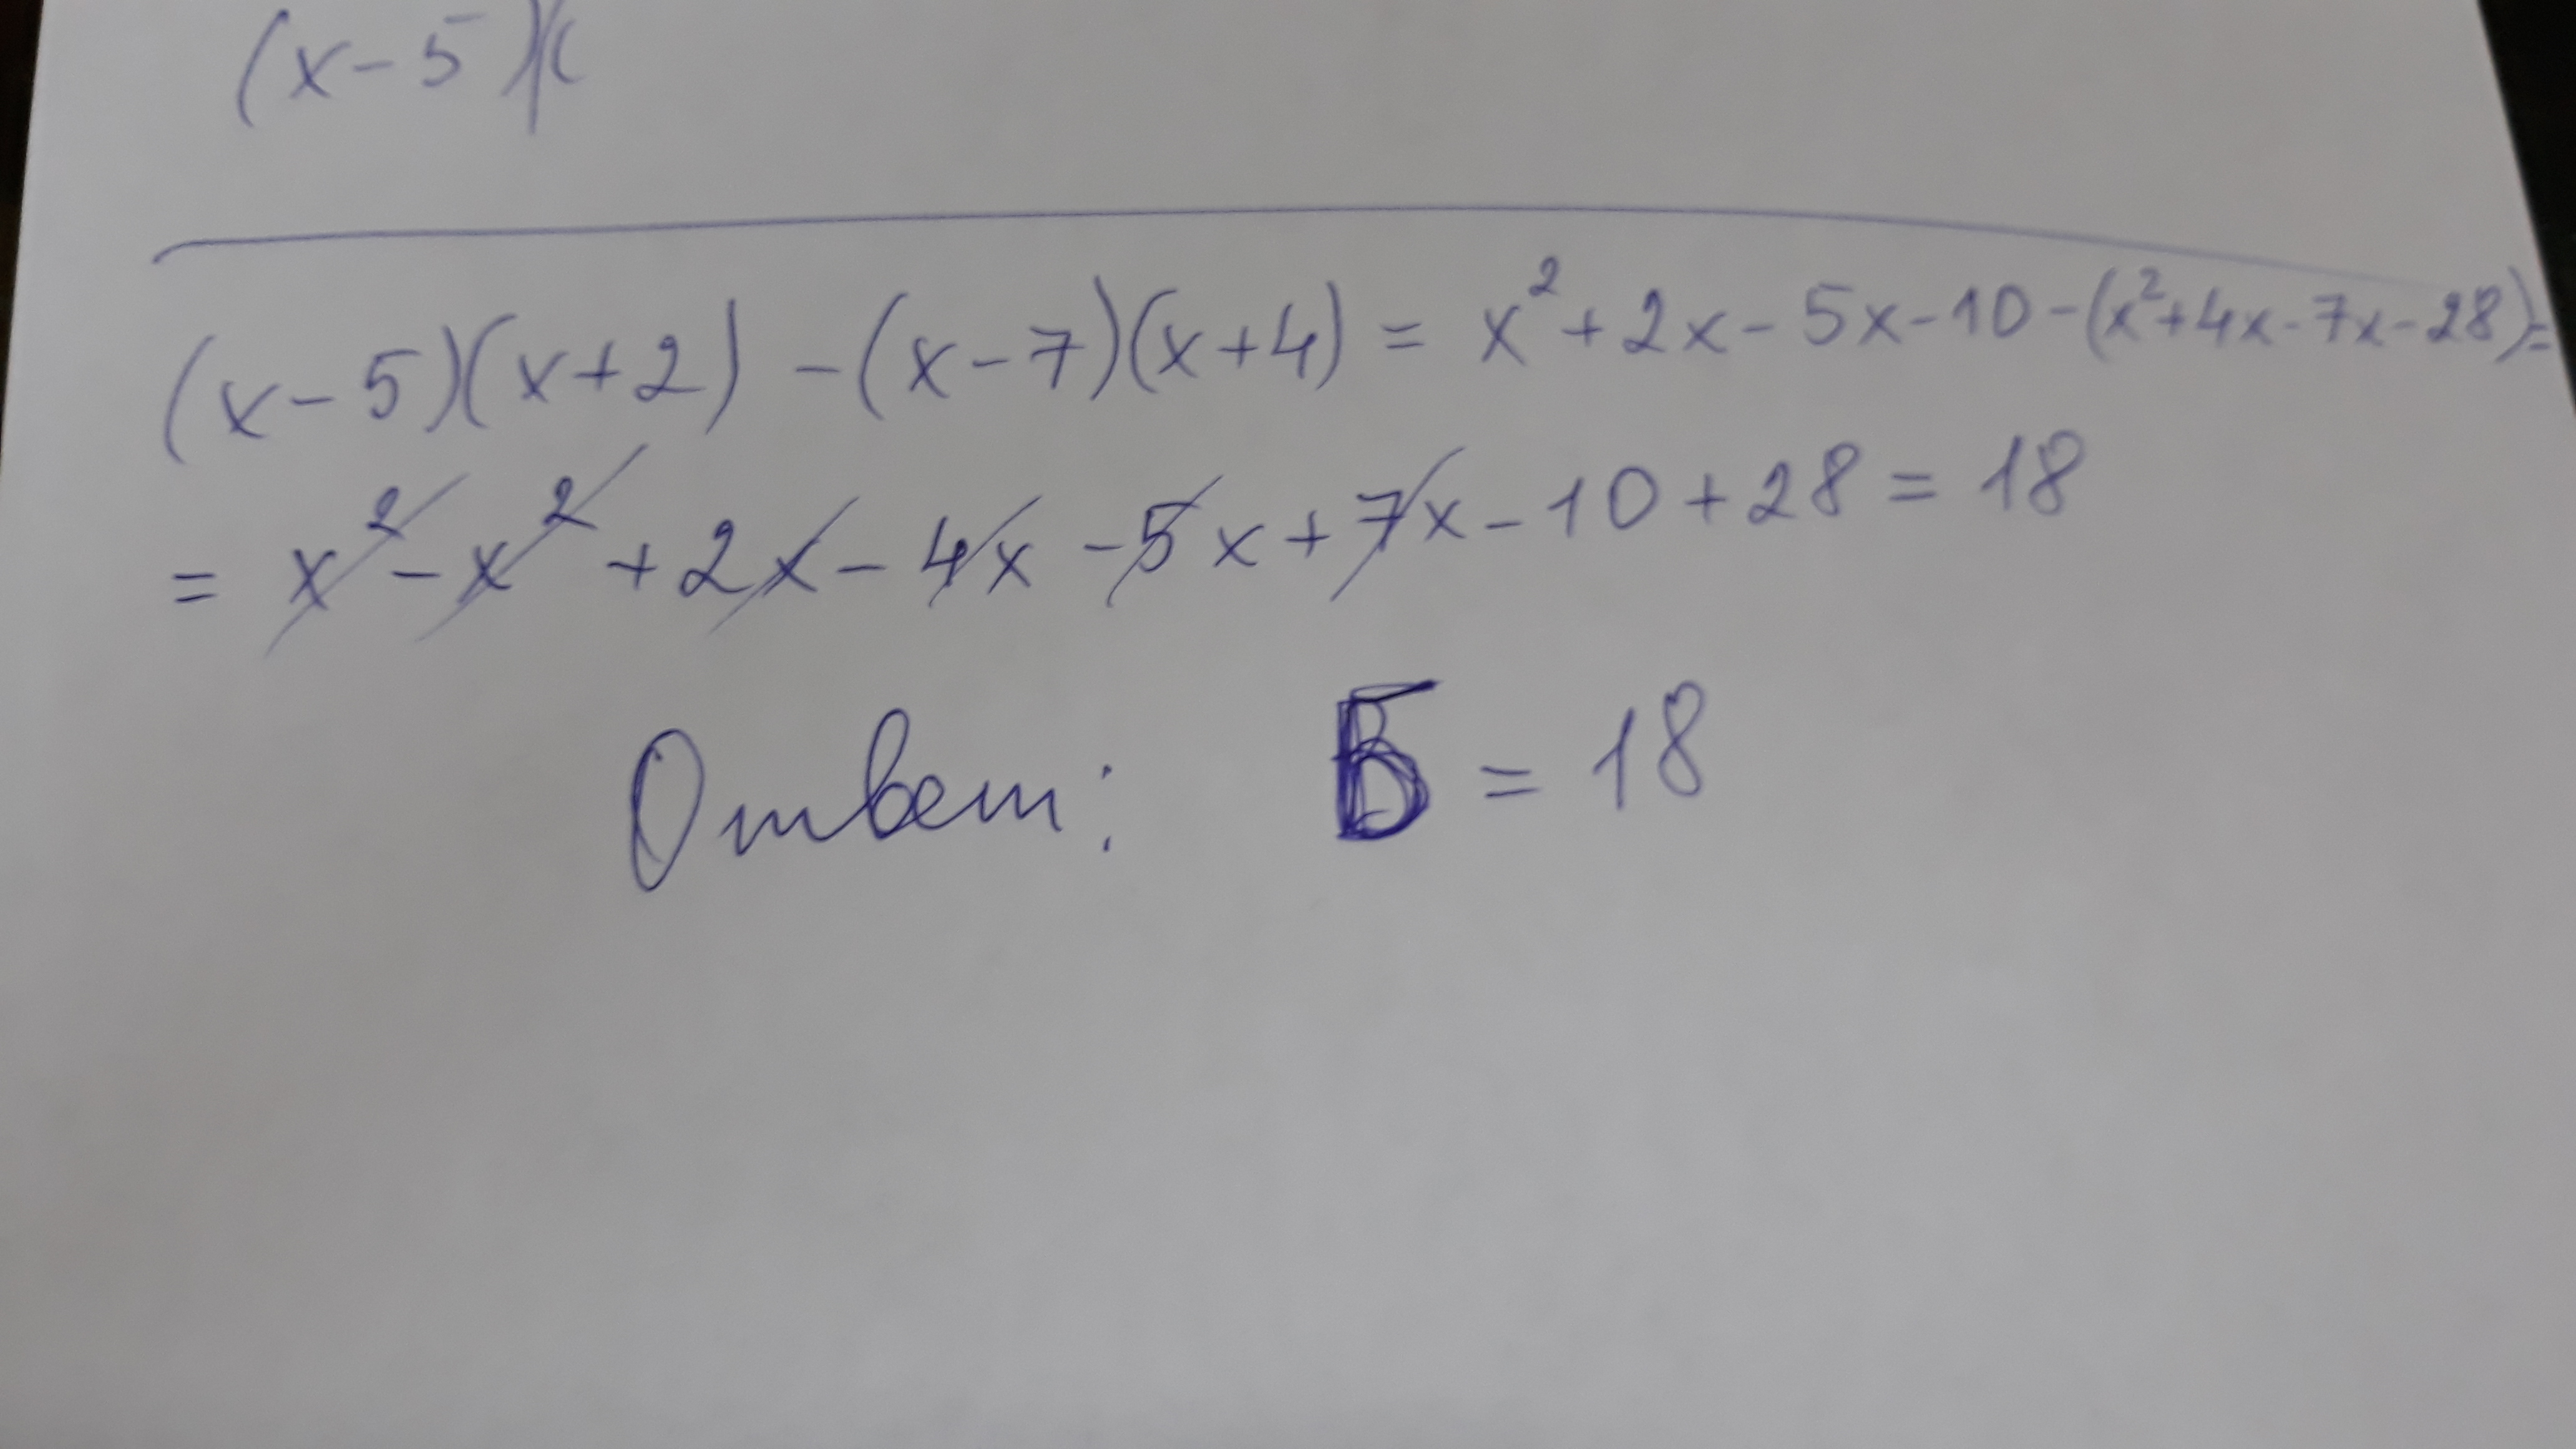 (x-5)(
(x-5)(x+2)-(x-7)(x+4)=x²+2x-5x-10-(x²+4x-7x-28)=
=x²-x²+2x-4x-5x+7x-10+28=18
Ответ: Б=18